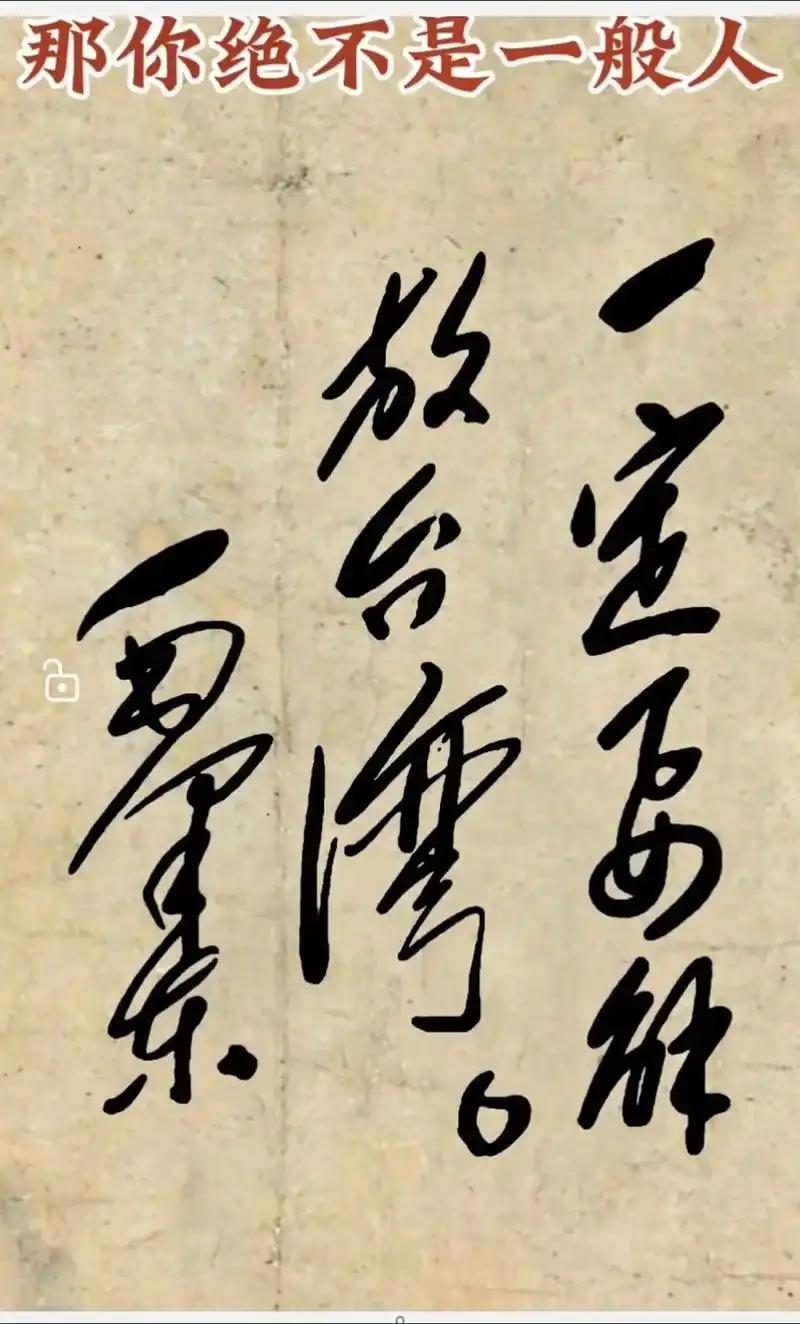 那你绝不是一般人
一定要解
放台湾。
毛泽东